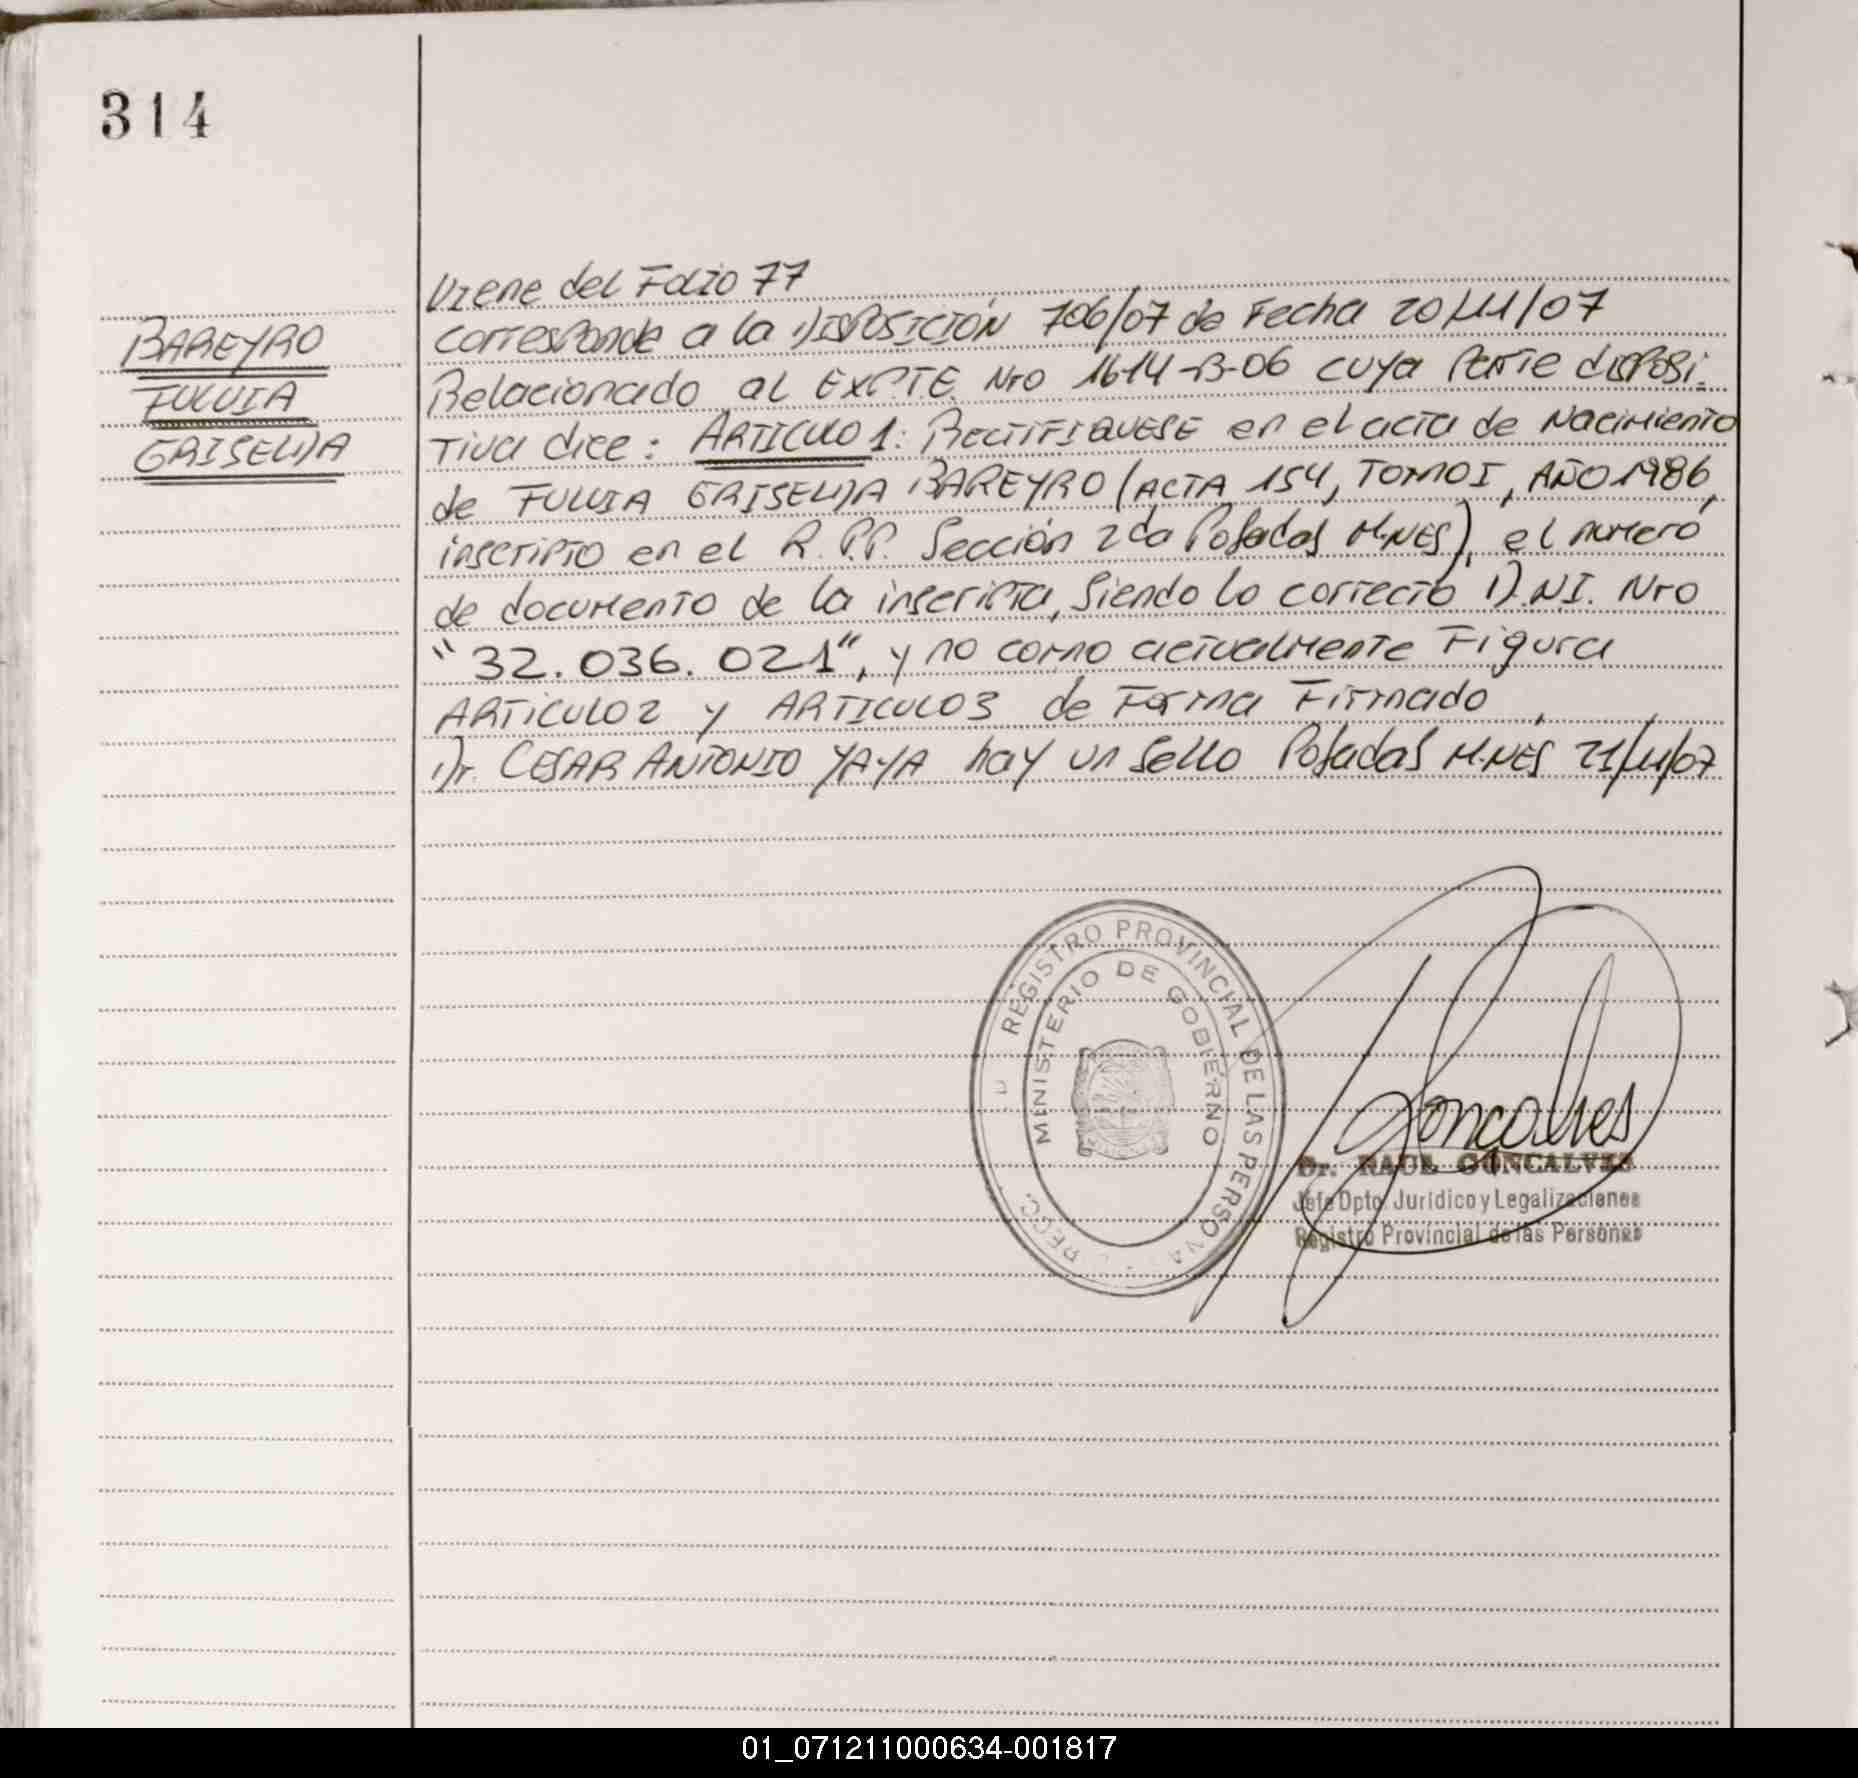 314
BAREYRO
FULVIA
GRISELDA
Viene del Folio 77
corresponde a la DISPOSICIÓN 706/07 de Fecha 20/11/07
Relacionado al EXPTE Nro 1614-B-06 cuya Parte disposi-
Tiva dice: ARTICULO 1: RECTIFIQUESE en el acta de Nacimiento
de FULVIA GRISELDA BAREYRO (ACTA 154, TOMO I, AÑO 1986,
inscripto en el R.P.P. Sección 2da Posadas M.NES), el numero
de documento de la inscripta, Siendo lo correcto D.N.I. Nro
"32.036.021", y no como actualmente Figura
ARTICULO 2 y ARTICULO 3 de Forma Firmado
Dr. CESAR ANTONIO YAYA hay un Sello Posadas M.NES 21/11/07
REGISTRO PROVINCIAL DE LAS PERSONA
MINISTERIO DE GOBIERNO
Goncalves
Dr. RAUL GONCALVES
Jefe Dpto. Jurídico y Legalizaciones
Registro Provincial de las Personas
01_071211000634-001817